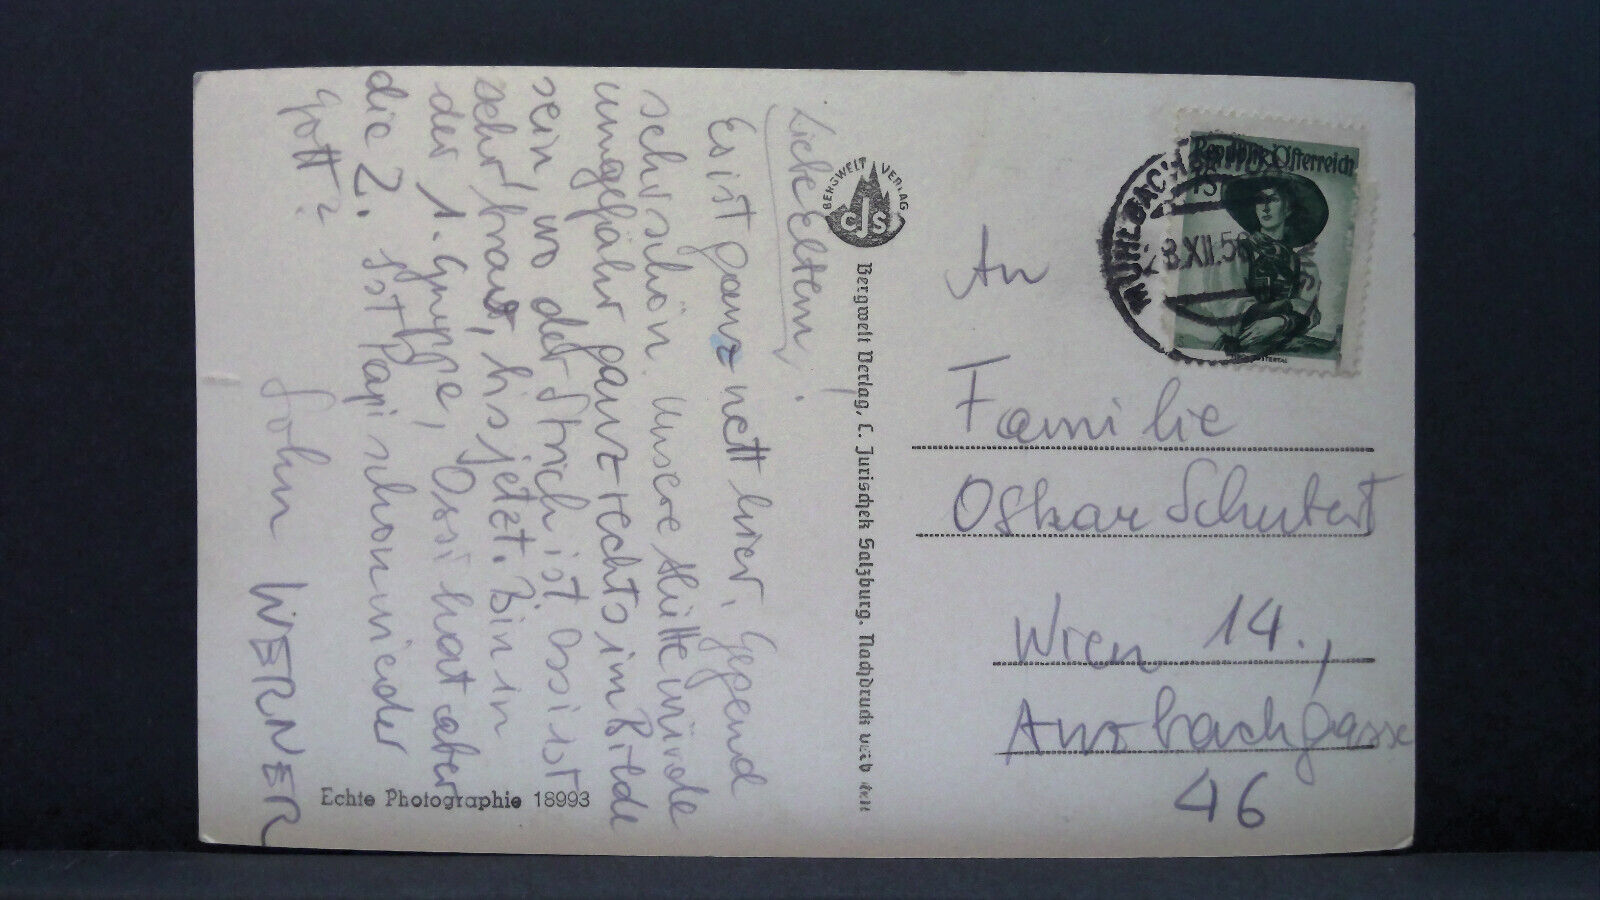 Liebe Eltern!
Es ist ganz nett hier. Gegend
sehr schön. Unsere Hütte würde
ungefähr ganz rechts im Bilde
sein, wo der Strich ist. Ossi ist
sehr brav, bis jetzt. Bin in
der 1. Gruppe, Ossi hat aber
die 2. Ist Papi schon wieder
gott?
Sohn WERNER
Echte Photographie 18993
BERGWELT VERLAG
CJS
Bergwelt Verlag, C. Jurischek Salzburg. Nachdruck verboten
Republik Österreich
MÜHLBACH
8.XII.56
An
Familie
Oskar Schubert
Wien 14.,
Amortbachgasse
46